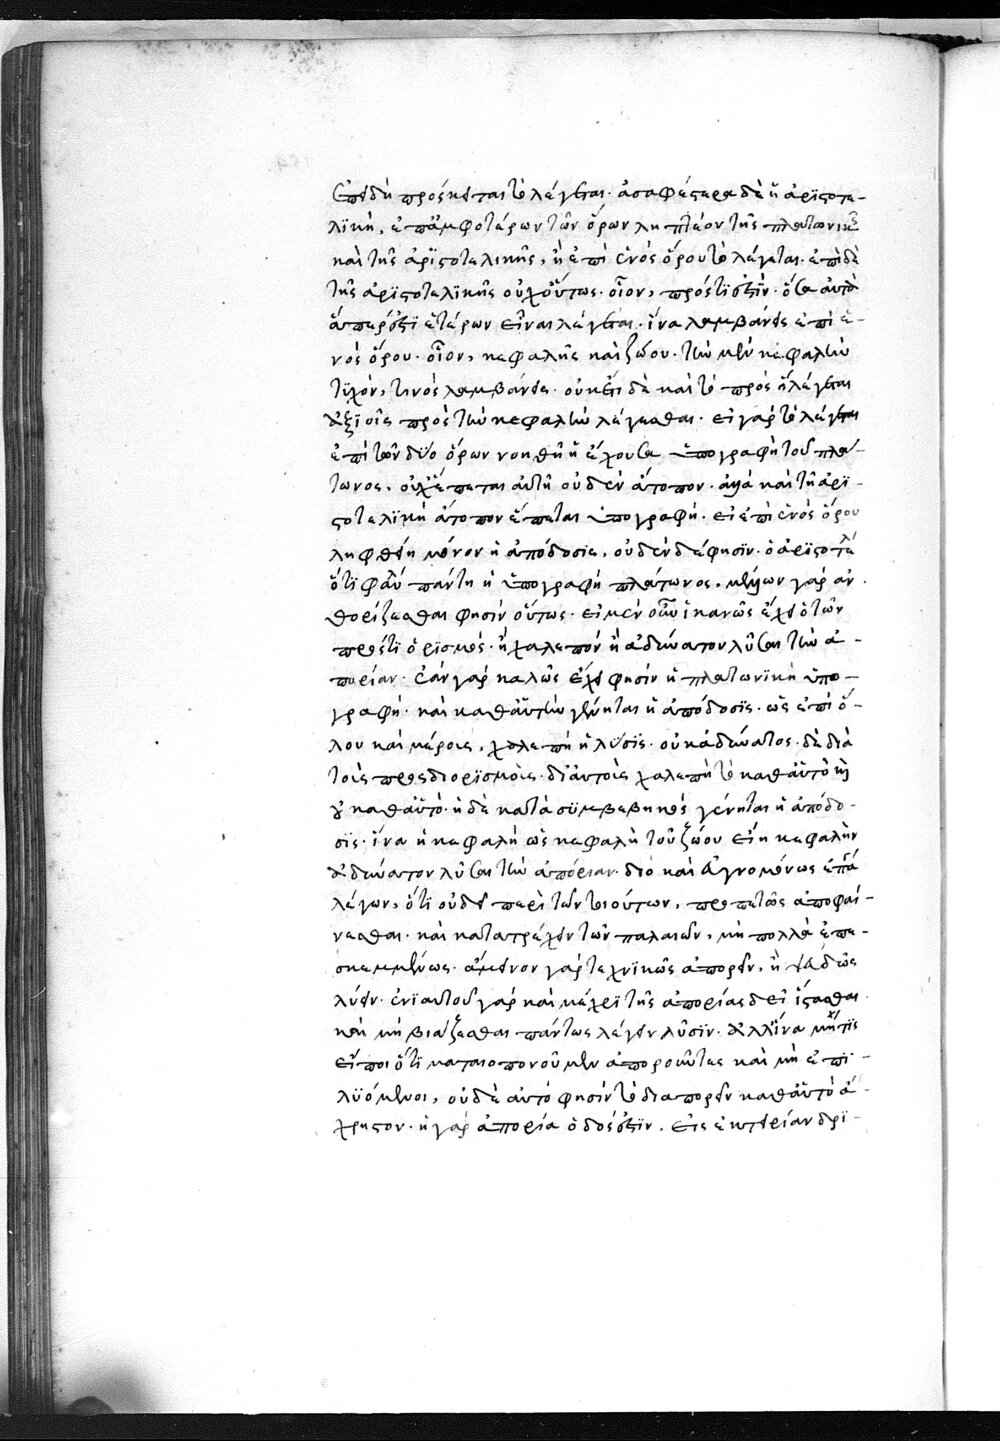 Ἐπειδὴ πρόσκειται τὸ λέγεται. ἀσαφέστερα δὲ ἡ ἀριστοτε-
λικὴ, ἐπ' ἀμφοτέρων τῶν ὅρων λη πτέον τῆς πλατωνικῆς
καὶ τῆς ἀριστοτελικῆς, ἢ ἐπὶ ἑνὸς ὅρου τὸ λέγεται. ἐπὶ δὲ
τῆς ἀριστοτελικῆς οὐχ οὕτως. οἷον, πρός τι ἐστὶν. ὅσα αὐτὰ
ἅπερ ἐστὶ ἑτέρων εἶναι λέγεται. ἵνα λαμβάνει ἐπὶ ἑ-
νὸς ὅρου. οἷον, κεφαλῆς καὶ ζώου. τὴν μὲν κεφαλὴν
τυχὸν, τινὸς λαμβάνει. οὐκέτι δὲ καὶ τὸ πρὸς ὃ λέγεται
ἀξιοῖς πρὸς τὴν κεφαλὴν λέγεσθαι. εἰ γὰρ τὸ λέγεται
ἐπὶ τῶν δύο ὅρων νοηθῆ ἡ ἔχουσα ὑπογραφὴ τοῦ πλά-
τωνος, οὐχ ἕπεται αὐτῆ οὐδὲν ἄτοπον. ἀλλὰ καὶ τῆ ἀρι-
στοτελικῆ ἄτοπον ἕπεται ὑπογραφῆ. εἰ ἐπὶ ἑνὸς ὅρου
ληφθείη μόνον ἡ ἀπόδοσις, οὐδὲν δέ φησιν. ὁ ἀριστοτέλης
ὅτι φαύλη πάντη ἡ ὑπογραφὴ πλάτωνος, μέλλων γὰρ ἀν
θορίζεσθαι φησὶν οὕτως. εἰ μὲν οὖν ἱκανῶς ἔχει ὁ τῶν
πρός τι ὁρισμός. ἢ χαλεπὸν ἢ ἀδύνατον λῦσαι τὴν ἀ-
πορίαν. ἐὰν γὰρ καλῶς ἔχει φησὶν ἡ πλατωνικὴ ὑπο-
γραφὴ. καὶ καθ' αὑτὴν γένηται ἡ ἀπόδοσις. ὡς ἐπὶ ὅ-
λου καὶ μέρους, χαλεπὴ ἡ λύσις. οὐκ ἀδύνατος. δὲ διὰ
τοὺς προσδιορισμοὺς. δι' αὐτοὺς χαλεπὴ τὸ καθ' αὑτὸ καὶ
οὐ καθ' αὑτό. ἡ δὲ κατὰ συμβεβηκὸς γένηται ἡ ἀπόδο-
σις. ἵνα ἡ κεφαλὴ ὡς κεφαλὴ τοῦ ζώου εἴη κεφαλὴν
ἀδύνατον λῦσαι τὴν ἀπορίαν. διὸ καὶ εὐγνομόνως ἐπάγει
λέγων, ὅτι οὐ δεῖ περὶ τῶν τοιούτων, προπετῶς ἀποφαί-
νεσθαι. καὶ κατατρέχειν τῶν παλαιῶν, μὴ πολλὰ ἐπε-
σκεμμένως. ἄμεινον γὰρ τεχνικῶς ἀπορεῖν, ἢ ψευδῶς
λύειν. ἐνιαυτοῦ γὰρ καὶ μέχρι τῆς ἀπορίας δεῖ ἵστασθαι
καὶ μὴ βιάζεσθαι πάντως λέγειν λῦσιν. ἀλλ' ἵνα μή τις
εἴποι ὅτι ματαιοπονοῦμεν ἀποροῦντες καὶ μὴ ἐπι-
λυόμενοι, οὐδὲ αὐτό φησιν τὸ διαπορεῖν καθ' αὑτὸ ἄ-
χρηστον. ἡ γὰρ ἀπορία ὁδός ἐστιν. εἰς εὐπορίαν δρι-